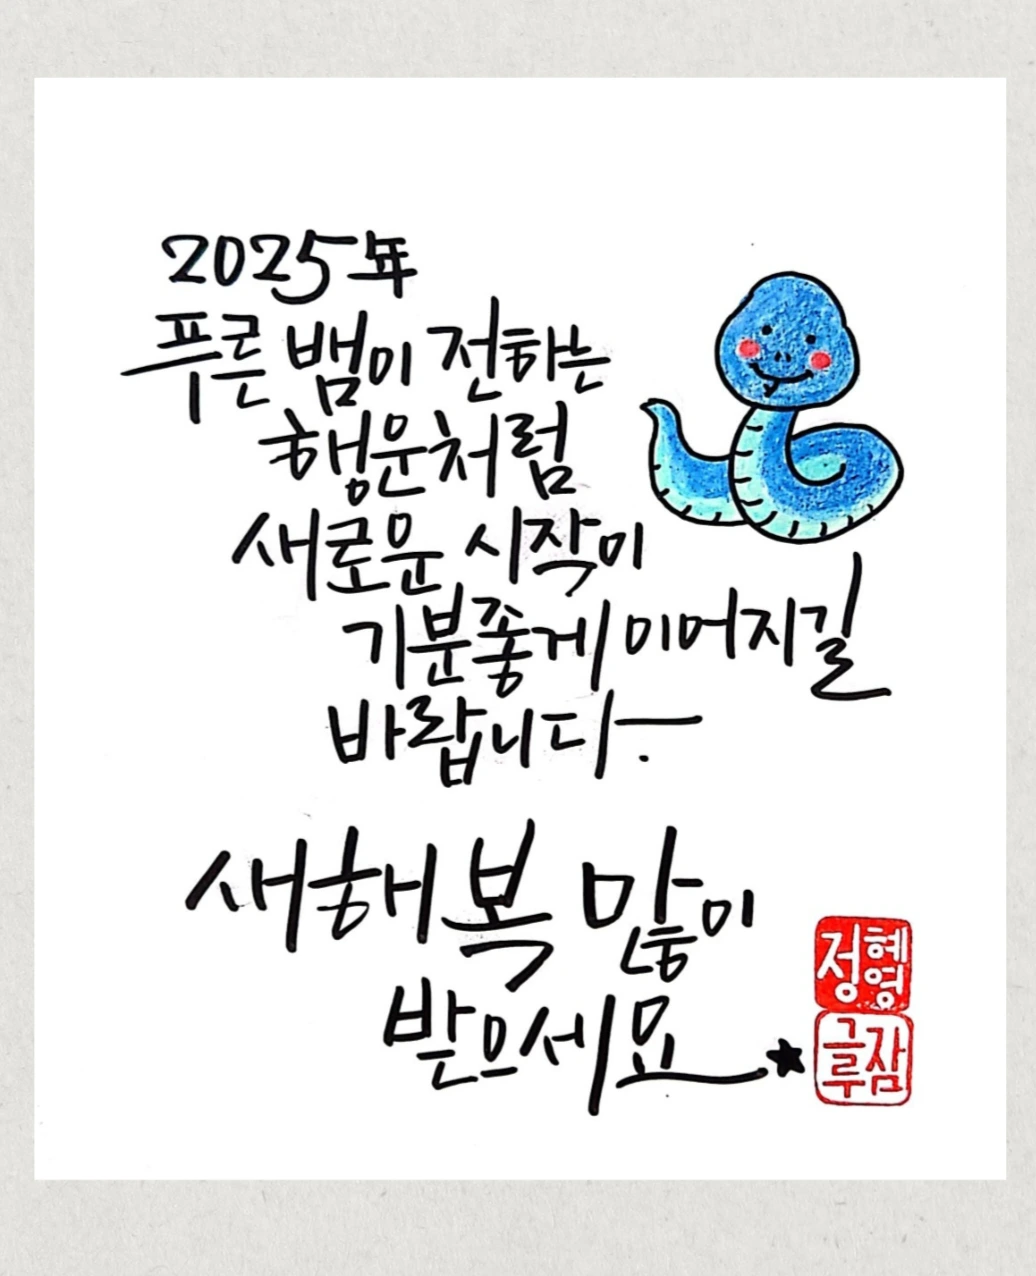 2025年
푸른 뱀이 전하는
행운처럼
새로운 시작이
기분좋게 이어지길
바랍니다.
새해 복 많이
받으세요
정혜영
글잠루